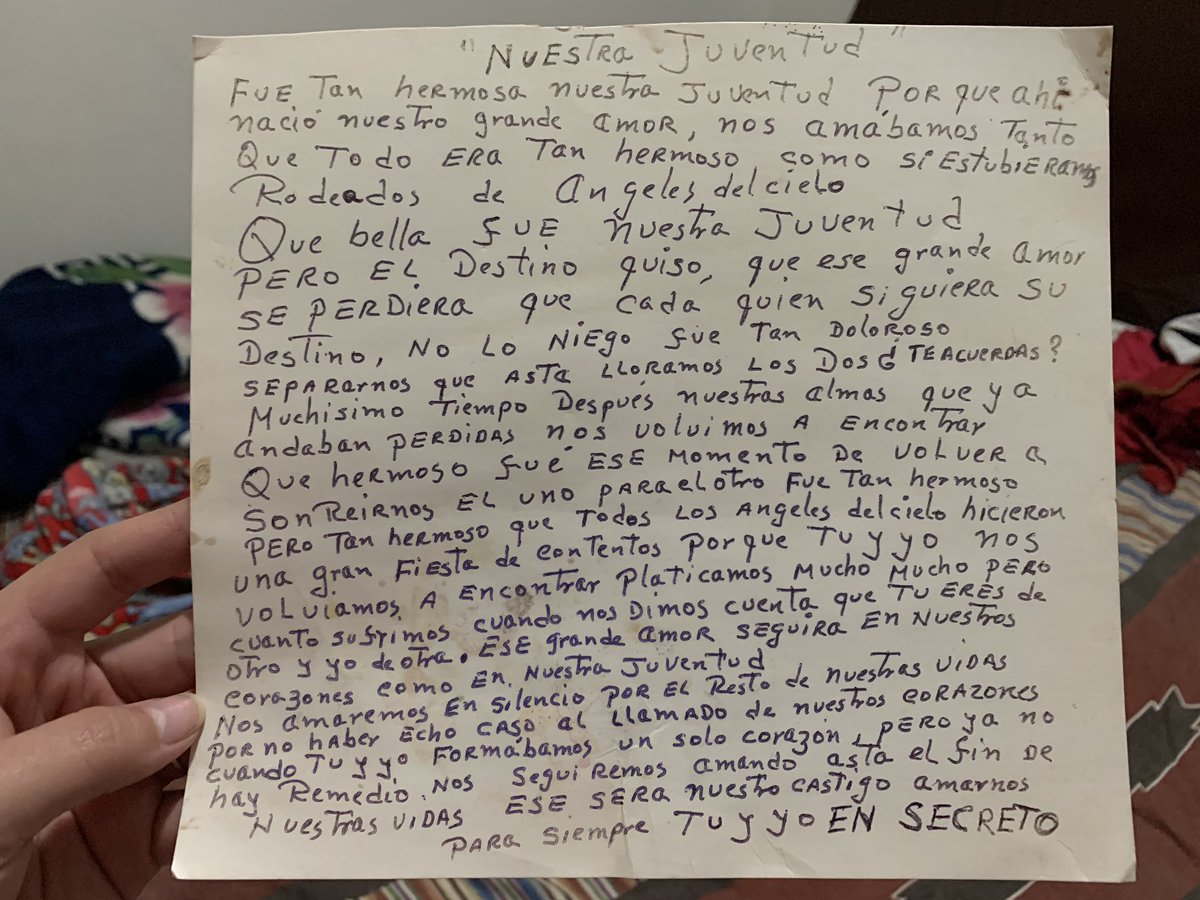 "NUESTRA JUVENTUD"
FUE TAN hermosa nuestra JUVENTUD PORque ahí
nació nuestro grande AMOR, nos amábamos Tanto
Que TODO ERA TAN hermoso como SI ESTUBIERAMOS
Rodeados de Angeles del cielo
Que bella FUE nuestra JUVENTUD
PERO EL DESTINO quiso, que ese grande amor
SE PERDIERA que cada quien SIGUIERA SU
DESTINO, NO LO NIEGO FUE TAN DOLOROSO
SEPARArnos que ASTA LLORAMOS LOS DOS ¿TEACUERDAS?
MUCHISIMO TIEMPO DESPUÉS nuestras almas que ya
andaban PERDIDAS nos volvimos A ENCONTRAR
Que hermoso fué ESE MOMENTO DE VOLVER a
SONREIRNOS EL UNO PARA el otro FUE TAN hermoso
PERO TAN hermoso que TODOS LOS ANGELES del cielo hicieron
una gran FIESTA de CONTENTOS PORQUE TU y yo nos
VOLVIAMOS A ENCONTRAR PLATICAMOS MUCHO MUCHO PERO
CUANTO SUFRIMOS cuando nos DIMOS CUENTA que TU ERES de
otro y yo de otra. ESE grande AMOR SEGUIRA EN NUESTROS
corazones como EN NUESTRA JUVENTUD
Nos amaremos EN SILENCIO POR EL RESTO de nuestras VIDAS
POR NO HABER ECHO CASO AL LLAMADO de nuestros CORAZONES
cuando TU y yo FORMÁBAMOS un solo corazón, PERO ya no
hay REMEDIO. NOS SEGUIREMOS amando asta el fin DE
NUESTRAS VIDAS ESE SERA nuestro CASTIGO amarnos
PARA SIEMPRE TU y yo EN SECRETO